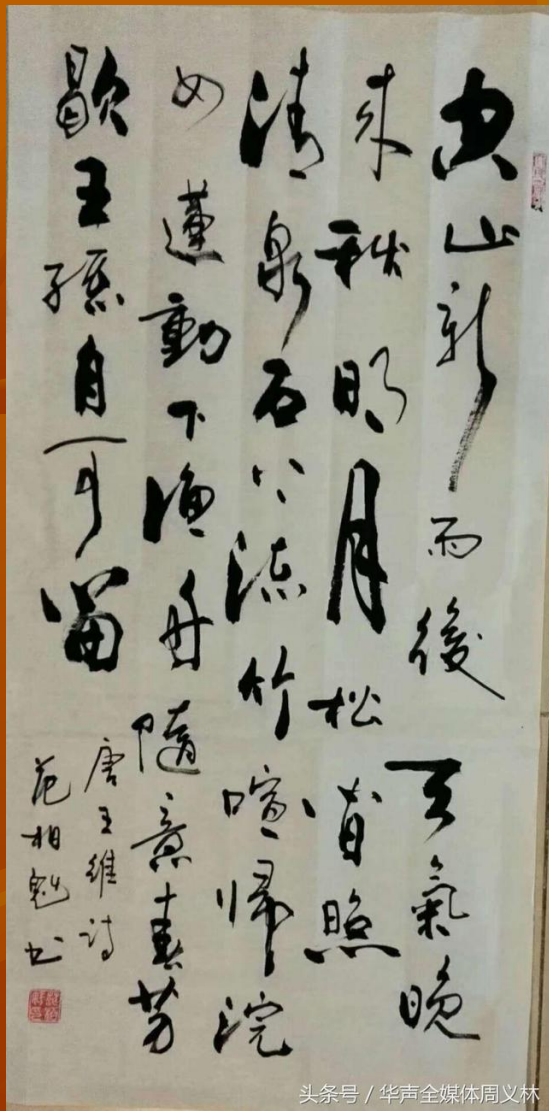 空山新雨後天氣晚
来秋明月松间照
清泉石上流竹喧歸浣
女蓮動下漁舟隨意春芳
歇王孫自可留
唐王維诗
范相魁书
头条号 / 华声全媒体周义林